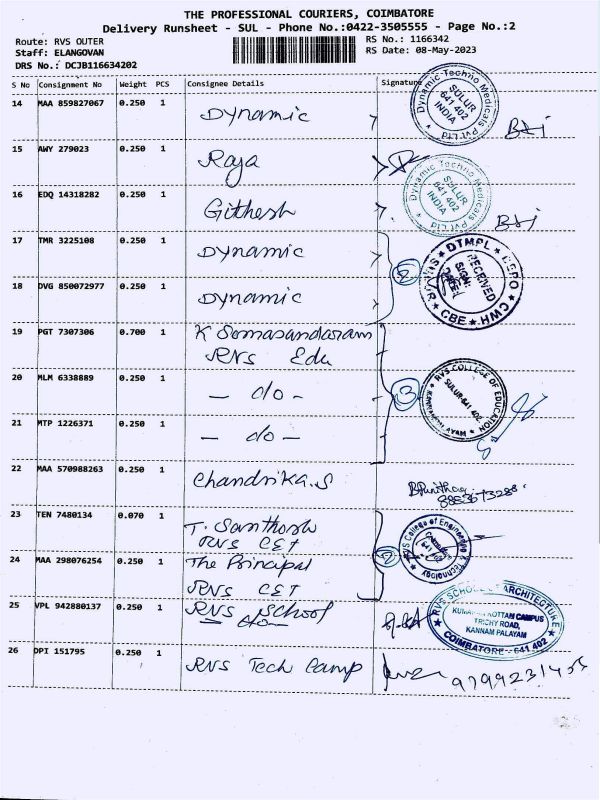 THE PROFESSIONAL COURIERS, COIMBATORE
Delivery Runsheet - SUL - Phone No.:0422-3505555 - Page No.:2
Route: RVS OUTER
RS No.: 1166342
Staff: ELANGOVAN
RS Date: 08-May-2023
DRS No.: DCJB116634202
S No Consignment No Weight PCS Consignee Details Signature
14 MAA 859827067 0.250 1 Dynamic
Dynamic Techno Medicals Pvt Ltd
SULUR
641 402
INDIA
15 AWY 279023 0.250 1 Raja
16 EDQ 14318282 0.250 1 Githesh
Dynamic Techno Medicals Pvt Ltd
SULUR
641 402
INDIA
17 TMR 3225108 0.250 1 Dynamic
2
DTMPL DEPO HWC CBE
RECEIVED
SIGN:
18 DVG 850072977 0.250 1 Dynamic
19 PGT 7307306 0.700 1 K Somasandaram
RVS Edu
20 MLM 6338889 0.250 1 - do -
3
RVS COLLEGE OF EDUCATION
SULUR-641 402
21 MTP 1226371 0.250 1 - do -
22 MAA 570988263 0.250 1 Chandrika.S
23 TEN 7480134 0.070 1 T. Santhosh
RVS CET
RVS College of Engineering
Technology
641 402
24 MAA 298076254 0.250 1 The Principal
RVS CET
25 VPL 942880137 0.250 1 RVS School
RVS SCHOOL OF ARCHITECTURE
KUMARAN KOTTAM CAMPUS
TRICHY ROAD,
KANNAM PALAYAM
COIMBATORE - 641 402
26 DPI 151795 0.250 1 RVS Tech Camp